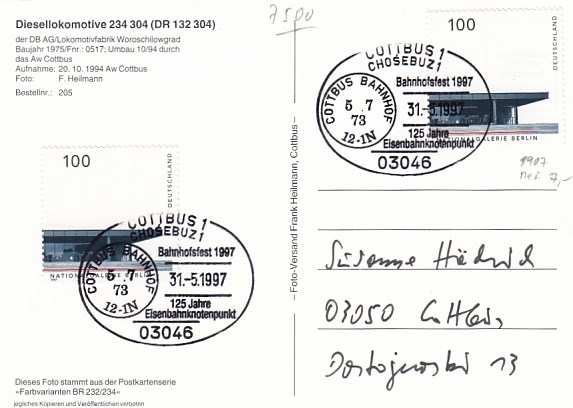 Diesellokomotive 234 304 (DR 132 304)
der DB AG/Lokomotivfabrik Woroschilowgrad
Baujahr 1975/Fnr.: 0517; Umbau 10/94 durch
das Aw Cottbus
Aufnahme: 20. 10. 1994 Aw Cottbus
Foto: F. Heilmann
Bestellnr.: 205
100
DEUTSCHLAND
NATIONALGALERIE BERLIN
COTTBUS 1
CHOŚEBUZ 1
COTTBUS BAHNHOF
5 7
73
12-1N
Bahnhofsfest 1997
31.-5.1997
125 Jahre
Eisenbahnknotenpunkt
03046
Dieses Foto stammt aus der Postkartenserie
»Farbvarianten BR 232/234«
jegliches Kopieren und Veröffentlichen verboten
– Foto-Versand Frank Heilmann, Cottbus –
7500
100
DEUTSCHLAND
NATIONALGALERIE BERLIN
COTTBUS 1
CHOŚEBUZ 1
COTTBUS BAHNHOF
5 7
73
12-1N
Bahnhofsfest 1997
31.-5.1997
125 Jahre
Eisenbahnknotenpunkt
03046
1907
MeF 7,-
Susanne
03050 Cottbus,
Dostojewski 13